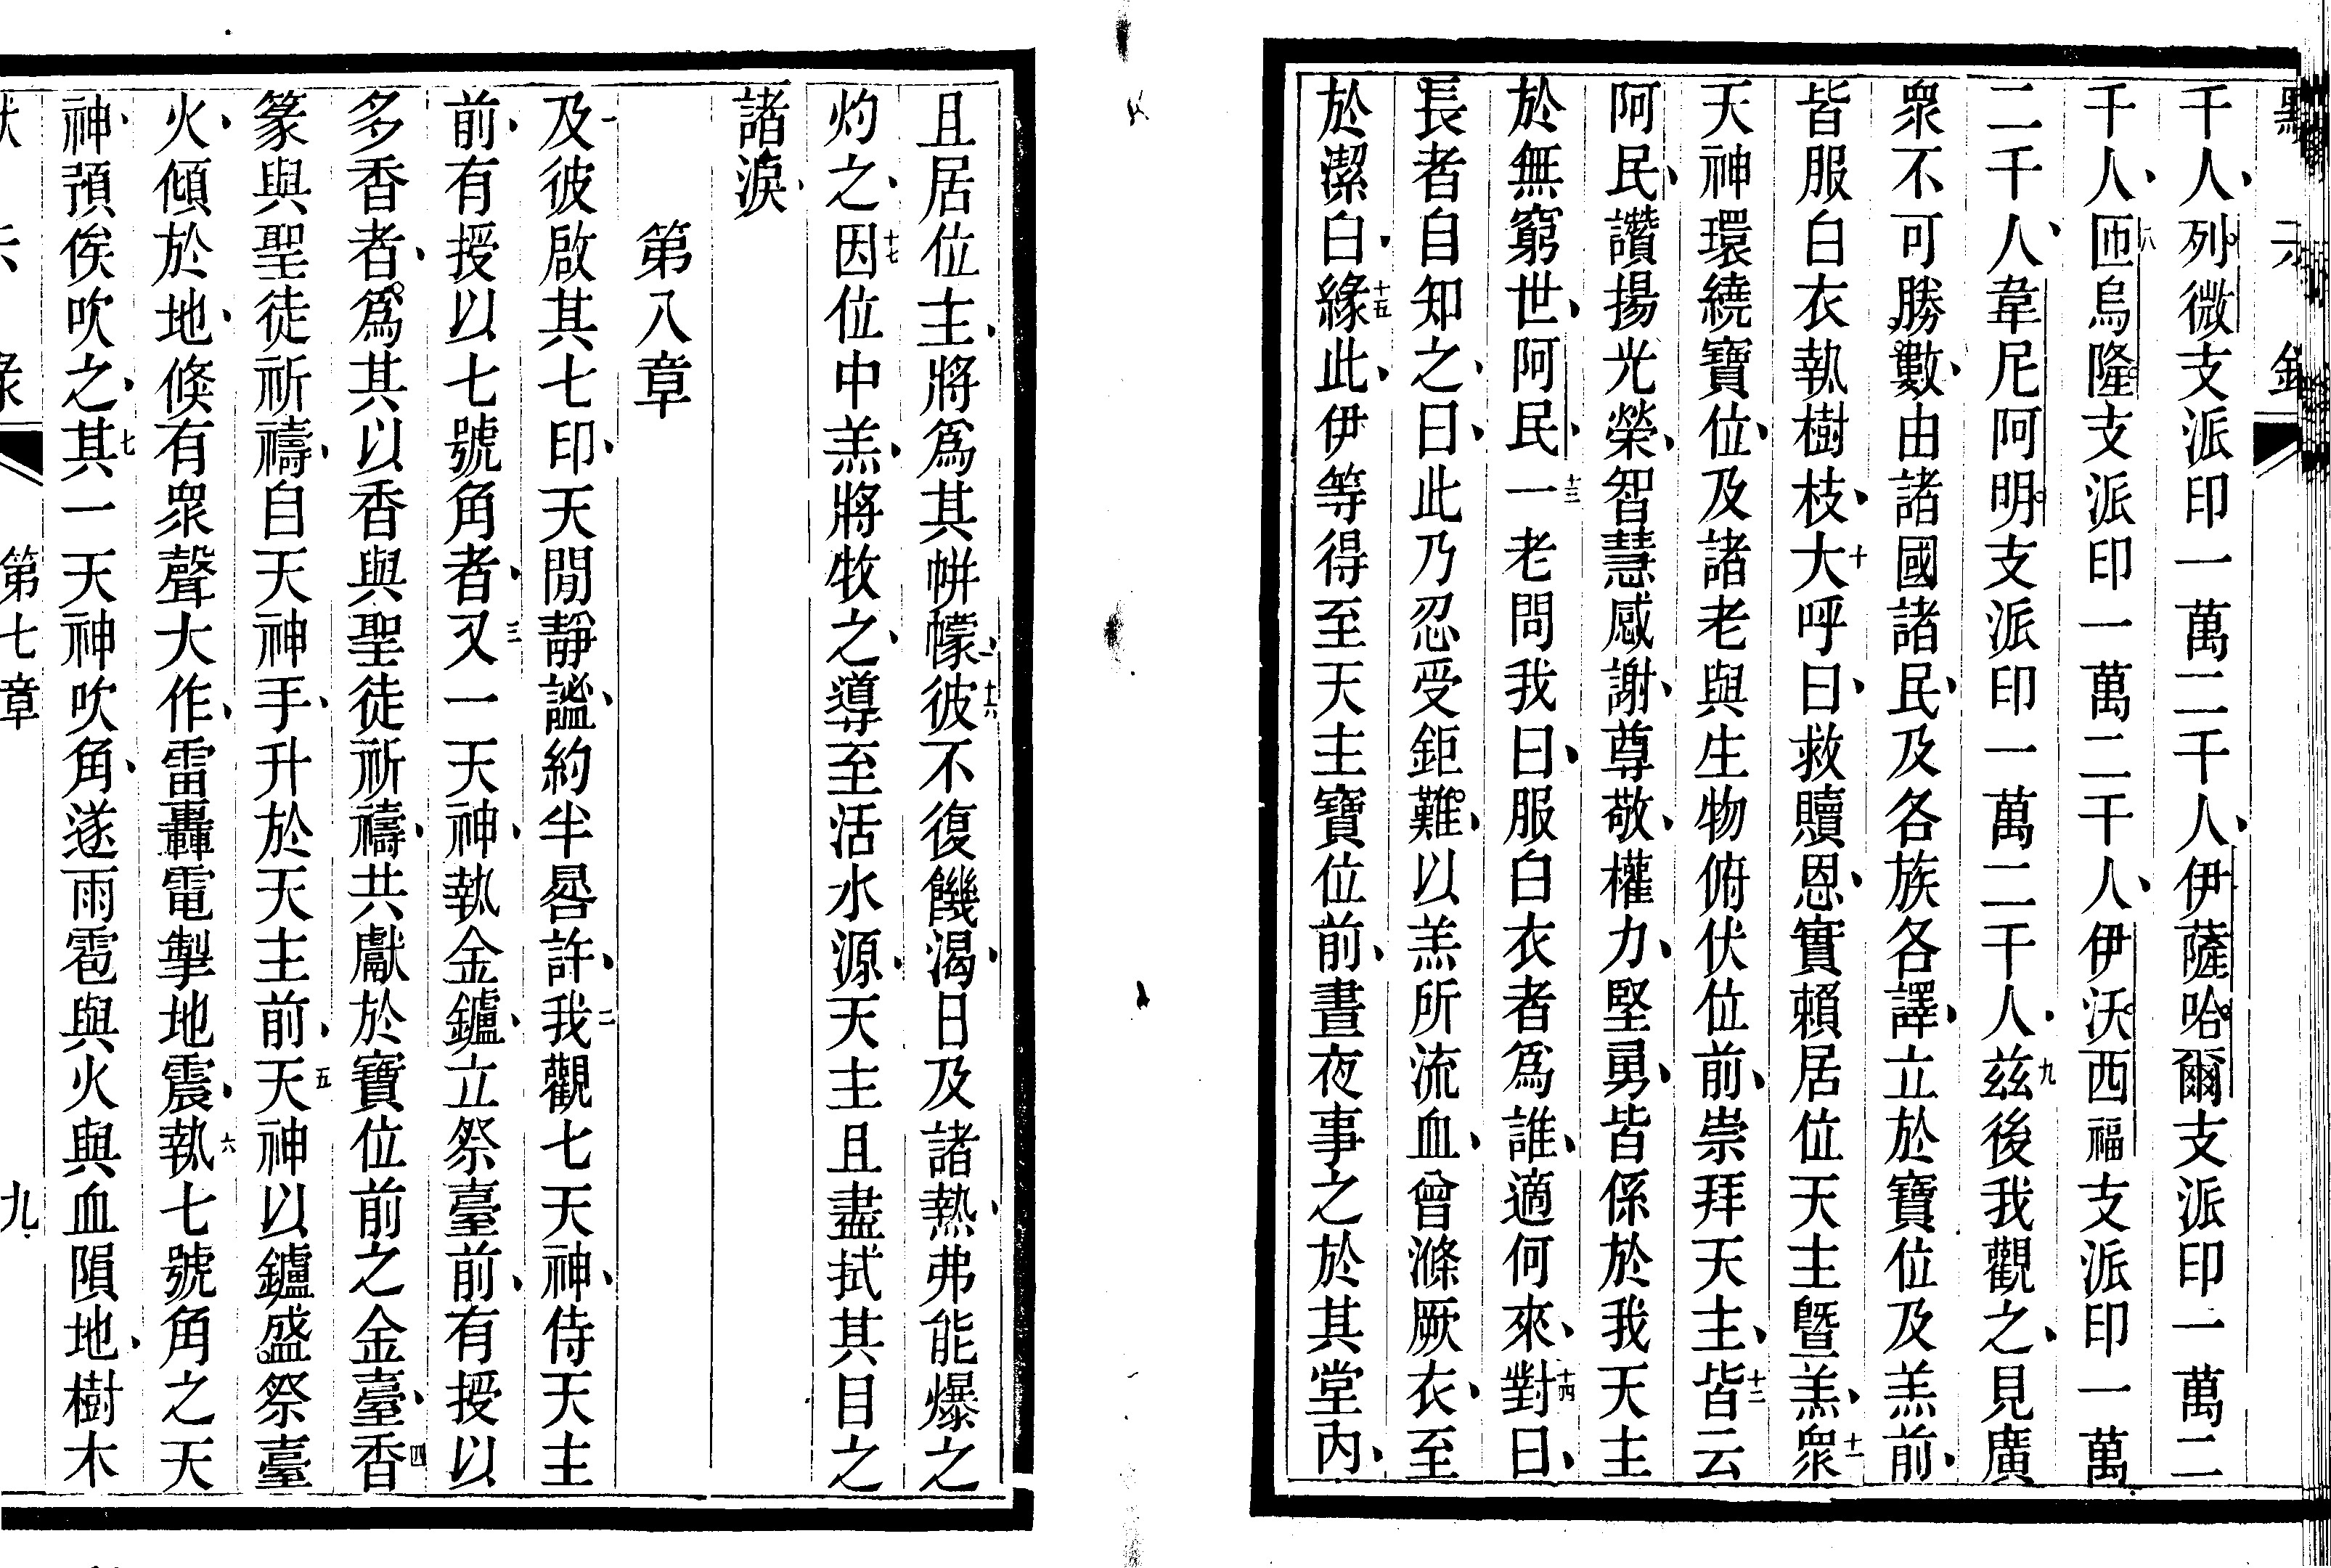 千人、列微支派印一萬二千人、伊薩哈爾支派印一萬二
千人、六匝烏隆支派印一萬二千人、伊沃西福支派印一萬
二千人、韋尼阿明支派印一萬二千人、九茲後我觀之、見廣
衆不可勝數、由諸國諸民、及各族各譯、立於寶位及羔前、
皆服白衣執樹枝、十大呼曰、救贖恩、實賴居位天主曁羔、十一衆
天神環繞寶位、及諸老與生物俯伏位前、崇拜天主、十二皆云
阿民、讚揚光榮、智慧感謝、尊敬、權力、堅勇、皆係於我天主
於無窮世、阿民、十三一老問我曰、服白衣者爲誰、適何來、十四對曰、
長者自知之、曰、此乃忍受鉅難、以羔所流血、曾滌厥衣、至
於潔白、十五緣此、伊等得至天主寶位前、晝夜事之於其堂內、
且居位主、將爲其帡幪、十六彼不復饑渴、日及諸熱、弗能爆之
灼之、十七因位中羔、將牧之、導至活水源、天主且盡拭其目之
諸淚、
第八章
一及彼啟其七印、天閒靜謐、約半晷許、二我觀七天神、侍天主
前、有授以七號角者、三又一天神、執金鑪、立祭臺前、有授以
多香者、爲其以香與聖徒祈禱、共獻於寶位前之金臺、四香
篆與聖徒祈禱、自天神手、升於天主前、五天神以鑪盛祭臺
火、傾於地、倏有衆聲大作、雷轟電掣地震、六執七號角之天
神、預俟吹之、七其一天神吹角、遂雨雹與火與血隕地、樹木
第七章
九